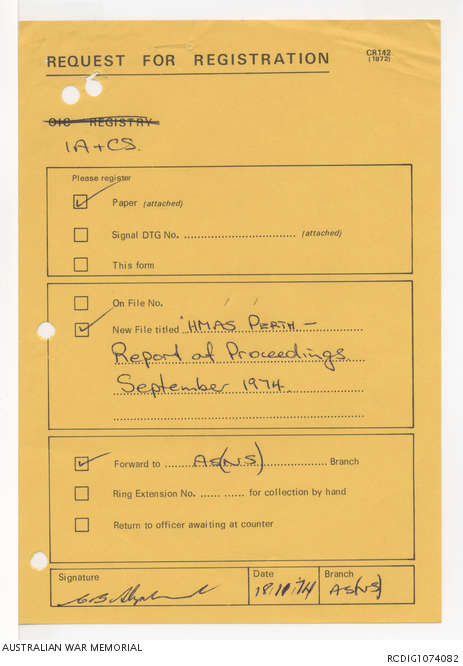 REQUEST FOR REGISTRATION
CR142
(1972)
OIC REGISTRY
IA+CS.
Please register
Paper (attached)
Signal DTG No. (attached)
This form
On File No. / /
New File titled HMAS PERTH —
Report of Proceedings
September 1974.
Forward to AS(NS) Branch
Ring Extension No. for collection by hand
Return to officer awaiting at counter
Signature
Date
Branch
18.10.74
AS(NS)
AUSTRALIAN WAR MEMORIAL
RCDIG1074082